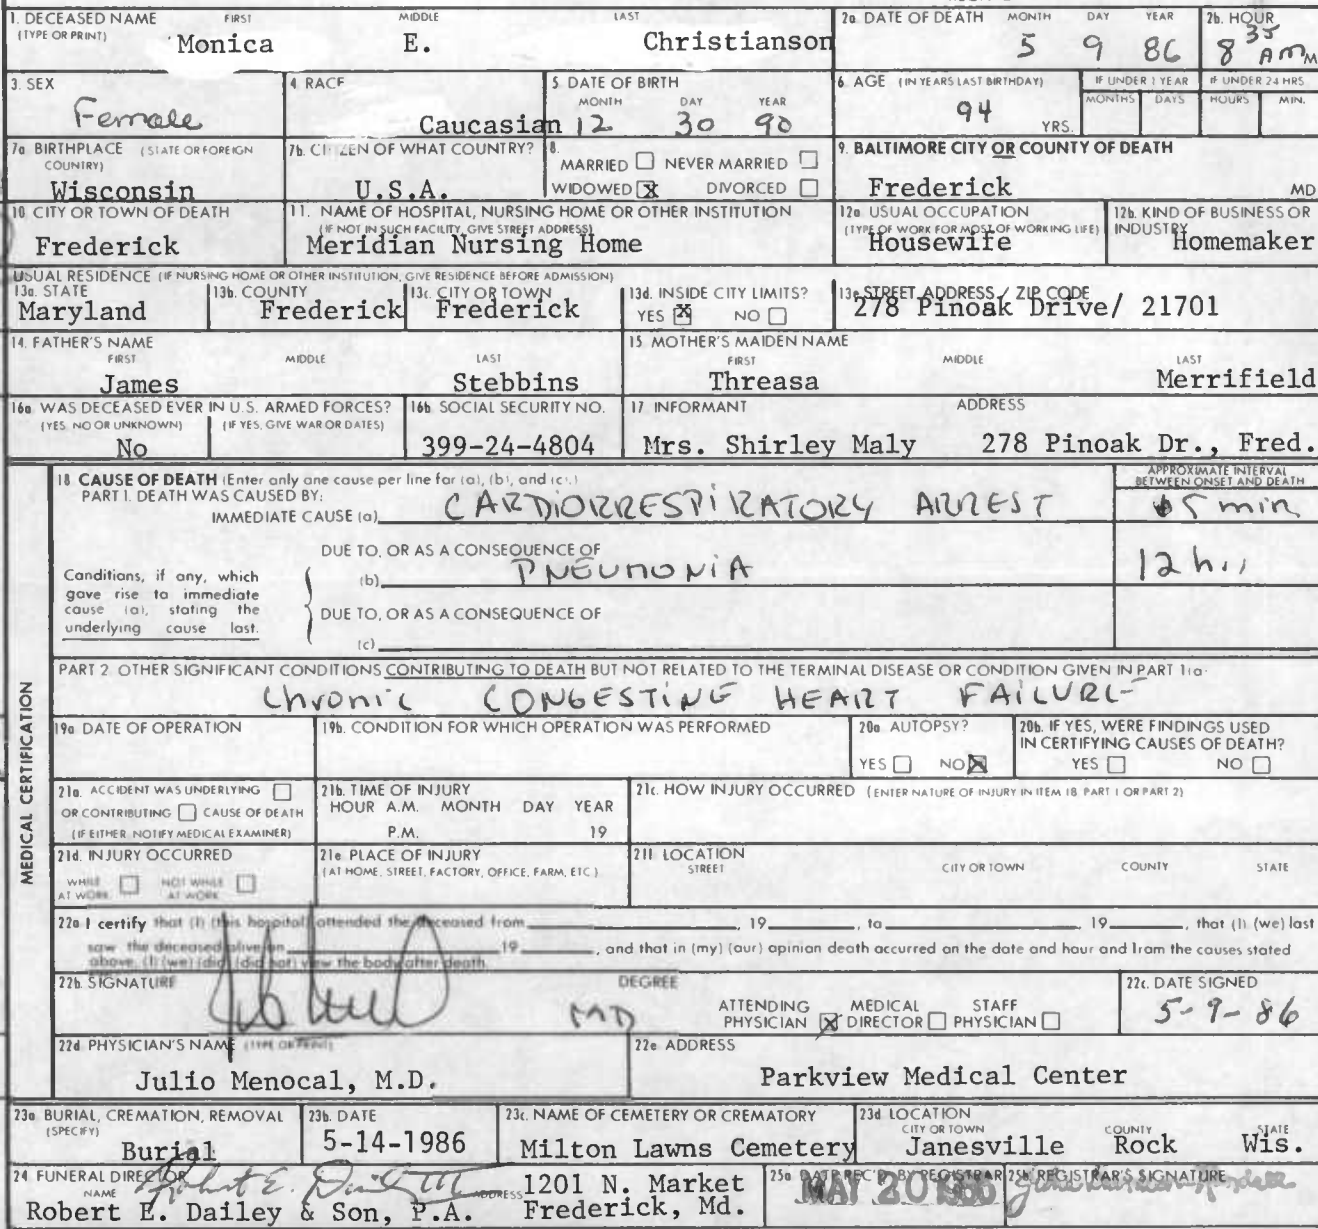 1. DECEASED NAME FIRST MIDDLE LAST
(TYPE OR PRINT)
Monica E. Christianson
2a. DATE OF DEATH MONTH DAY YEAR
5 9 86
2b. HOUR
8 35 AM M
3. SEX
Female
4. RACE
Caucasian
5. DATE OF BIRTH
MONTH DAY YEAR
12 30 90
6. AGE (IN YEARS LAST BIRTHDAY)
94 YRS.
IF UNDER 1 YEAR
MONTHS DAYS
IF UNDER 24 HRS
HOURS MIN.
7a. BIRTHPLACE (STATE OR FOREIGN COUNTRY)
Wisconsin
7b. CITIZEN OF WHAT COUNTRY?
U.S.A.
8.
MARRIED NEVER MARRIED
WIDOWED X DIVORCED
9. BALTIMORE CITY OR COUNTY OF DEATH
Frederick MD
10. CITY OR TOWN OF DEATH
Frederick
11. NAME OF HOSPITAL, NURSING HOME OR OTHER INSTITUTION
(IF NOT IN SUCH FACILITY, GIVE STREET ADDRESS)
Meridian Nursing Home
12a. USUAL OCCUPATION
(TYPE OF WORK FOR MOST OF WORKING LIFE)
Housewife
12b. KIND OF BUSINESS OR INDUSTRY
Homemaker
USUAL RESIDENCE (IF NURSING HOME OR OTHER INSTITUTION, GIVE RESIDENCE BEFORE ADMISSION)
13a. STATE
Maryland
13b. COUNTY
Frederick
13c. CITY OR TOWN
Frederick
13d. INSIDE CITY LIMITS?
YES X NO
13e. STREET ADDRESS / ZIP CODE
278 Pinoak Drive/ 21701
14. FATHER'S NAME
FIRST MIDDLE LAST
James Stebbins
15. MOTHER'S MAIDEN NAME
FIRST MIDDLE LAST
Threasa Merrifield
16a. WAS DECEASED EVER IN U.S. ARMED FORCES?
(YES, NO OR UNKNOWN) (IF YES, GIVE WAR OR DATES)
No
16b. SOCIAL SECURITY NO.
399-24-4804
17. INFORMANT ADDRESS
Mrs. Shirley Maly 278 Pinoak Dr., Fred.
MEDICAL CERTIFICATION
18. CAUSE OF DEATH (Enter only one cause per line for (a), (b), and (c).)
PART I. DEATH WAS CAUSED BY:
IMMEDIATE CAUSE (a) CARDIORRESPIRATORY ARREST
APPROXIMATE INTERVAL BETWEEN ONSET AND DEATH
5 min
Conditions, if any, which gave rise to immediate cause (a), stating the underlying cause last.
DUE TO, OR AS A CONSEQUENCE OF
(b) PNEUMONIA
12 h
DUE TO, OR AS A CONSEQUENCE OF
(c)
PART 2. OTHER SIGNIFICANT CONDITIONS CONTRIBUTING TO DEATH BUT NOT RELATED TO THE TERMINAL DISEASE OR CONDITION GIVEN IN PART 1(a)
Chronic CONGESTING HEART FAILURE
19a. DATE OF OPERATION
19b. CONDITION FOR WHICH OPERATION WAS PERFORMED
20a. AUTOPSY?
YES NO X
20b. IF YES, WERE FINDINGS USED IN CERTIFYING CAUSES OF DEATH?
YES NO
21a. ACCIDENT WAS UNDERLYING
OR CONTRIBUTING CAUSE OF DEATH
(IF EITHER NOTIFY MEDICAL EXAMINER)
21b. TIME OF INJURY
HOUR A.M. MONTH DAY YEAR
P.M. 19
21c. HOW INJURY OCCURRED (ENTER NATURE OF INJURY IN ITEM 18 PART I OR PART 2)
21d. INJURY OCCURRED
WHILE AT WORK NOT WHILE AT WORK
21e. PLACE OF INJURY
(AT HOME, STREET, FACTORY, OFFICE, FARM, ETC.)
21f. LOCATION
STREET CITY OR TOWN COUNTY STATE
22a. I certify that (I) (this hospital) attended the deceased from 19 , to 19 , that (I) (we) last
saw the deceased alive on 19 , and that in (my) (our) opinion death occurred on the date and hour and from the causes stated
above. (I) (we) (did) (did not) view the body after death.
22b. SIGNATURE DEGREE
MD
ATTENDING PHYSICIAN X MEDICAL DIRECTOR STAFF PHYSICIAN
22c. DATE SIGNED
5-9-86
22d. PHYSICIAN'S NAME (TYPE OR PRINT)
Julio Menocal, M.D.
22e. ADDRESS
Parkview Medical Center
23a. BURIAL, CREMATION, REMOVAL
(SPECIFY)
Burial
23b. DATE
5-14-1986
23c. NAME OF CEMETERY OR CREMATORY
Milton Lawns Cemetery
23d. LOCATION
CITY OR TOWN COUNTY STATE
Janesville Rock Wis.
24. FUNERAL DIRECTOR
NAME Robert E. Dailey III
Robert E. Dailey & Son, P.A.
ADDRESS 1201 N. Market
Frederick, Md.
25a. DATE REC'D BY REGISTRAR
MAY 20 1986
25b. REGISTRAR'S SIGNATURE